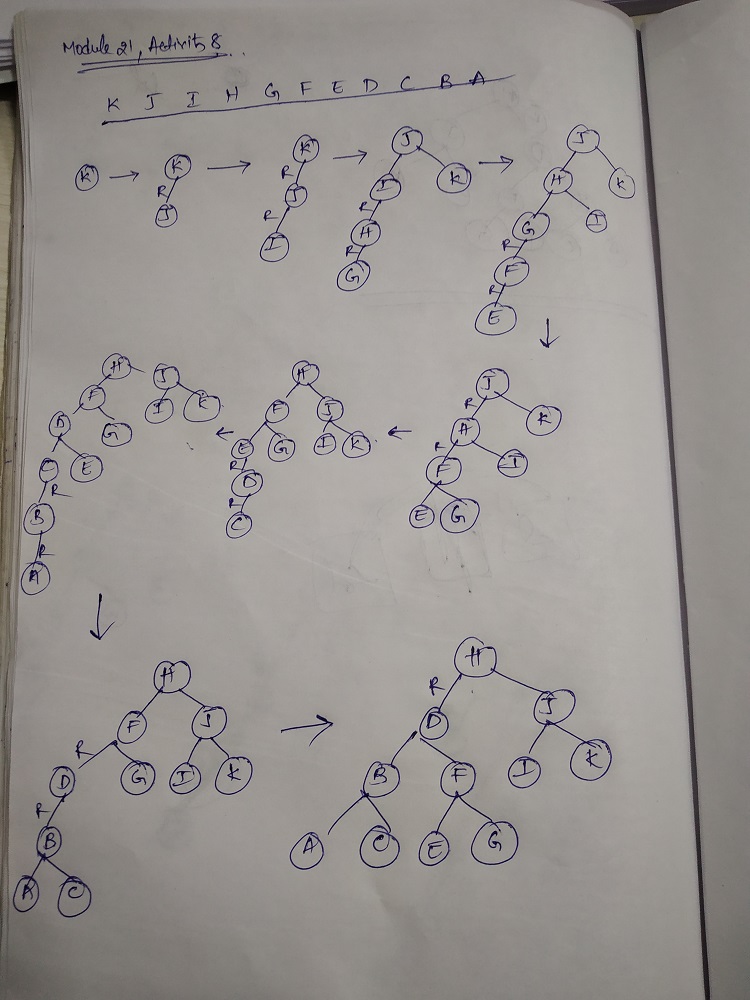 Module 21, Activity 8
K J I H G F E D C B A
K
K
R
J
K
R
J
R
I
J
I K
R
H
R
G
J
H K
G I
R
F
R
E
H
F J
D G I K
C E
R
B
R
A
H
F J
E G I K
R
D
R
C
J
R
H K
R
F I
E G
H
F J
R
D G I K
R
B
A C
H
R
D J
B F I K
A C E G